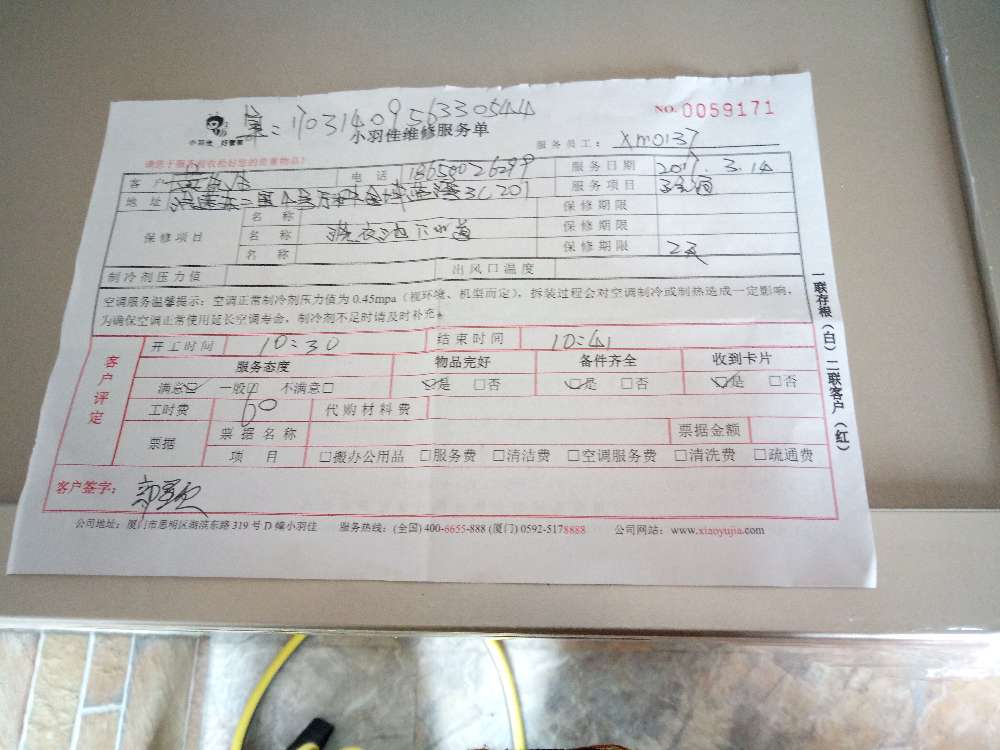 1703140956330544
NO. 0059171
小羽佳 好管家
小羽佳维修服务单
服务员工: xm0137
请您于服务前收捡好您的贵重物品!
客户 电话 18650026299 服务日期 2017.3.14
地址 3C201 服务项目
保修项目 名称 保修期限
名称 洗衣池下水道 保修期限
名称 保修期限
制冷剂压力值 出风口温度
空调服务温馨提示:空调正常制冷剂压力值为0.45mpa(视环境、机型而定),拆装过程会对空调制冷或制热造成一定影响,
为确保空调正常使用延长空调寿命,制冷剂不足时请及时补充。
客户评定
开工时间 10:30 结束时间 10:41
服务态度 物品完好 备件齐全 收到卡片
满意□ 一般□ 不满意□ □是 □否 □是 □否 □是 □否
工时费 60 代购材料费
票据 票据名称 票据金额
项目 □搬办公用品 □服务费 □清洁费 □空调服务费 □清洗费 □疏通费
客户签字:
公司地址:厦门市思明区湖滨东路319号D幢小羽佳 服务热线:(全国)400-6655-888 (厦门)0592-5178888 公司网站:www.xiaoyujia.com
一联存根(白)二联客户(红)